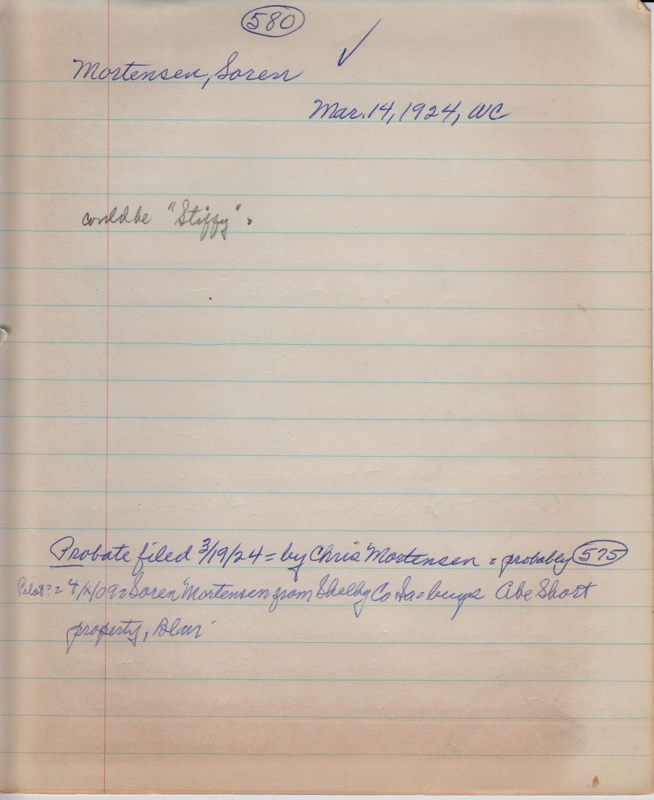 580
Mortensen, Soren
Mar. 14, 1924, WC
could be "Stiffy".
Probate filed 3/19/24 = by Chris Mortensen = probably 575
Pilot? = 4/ /09 = Soren Mortensen from Shelby Co Ia = buys Abe Short
property, Blair